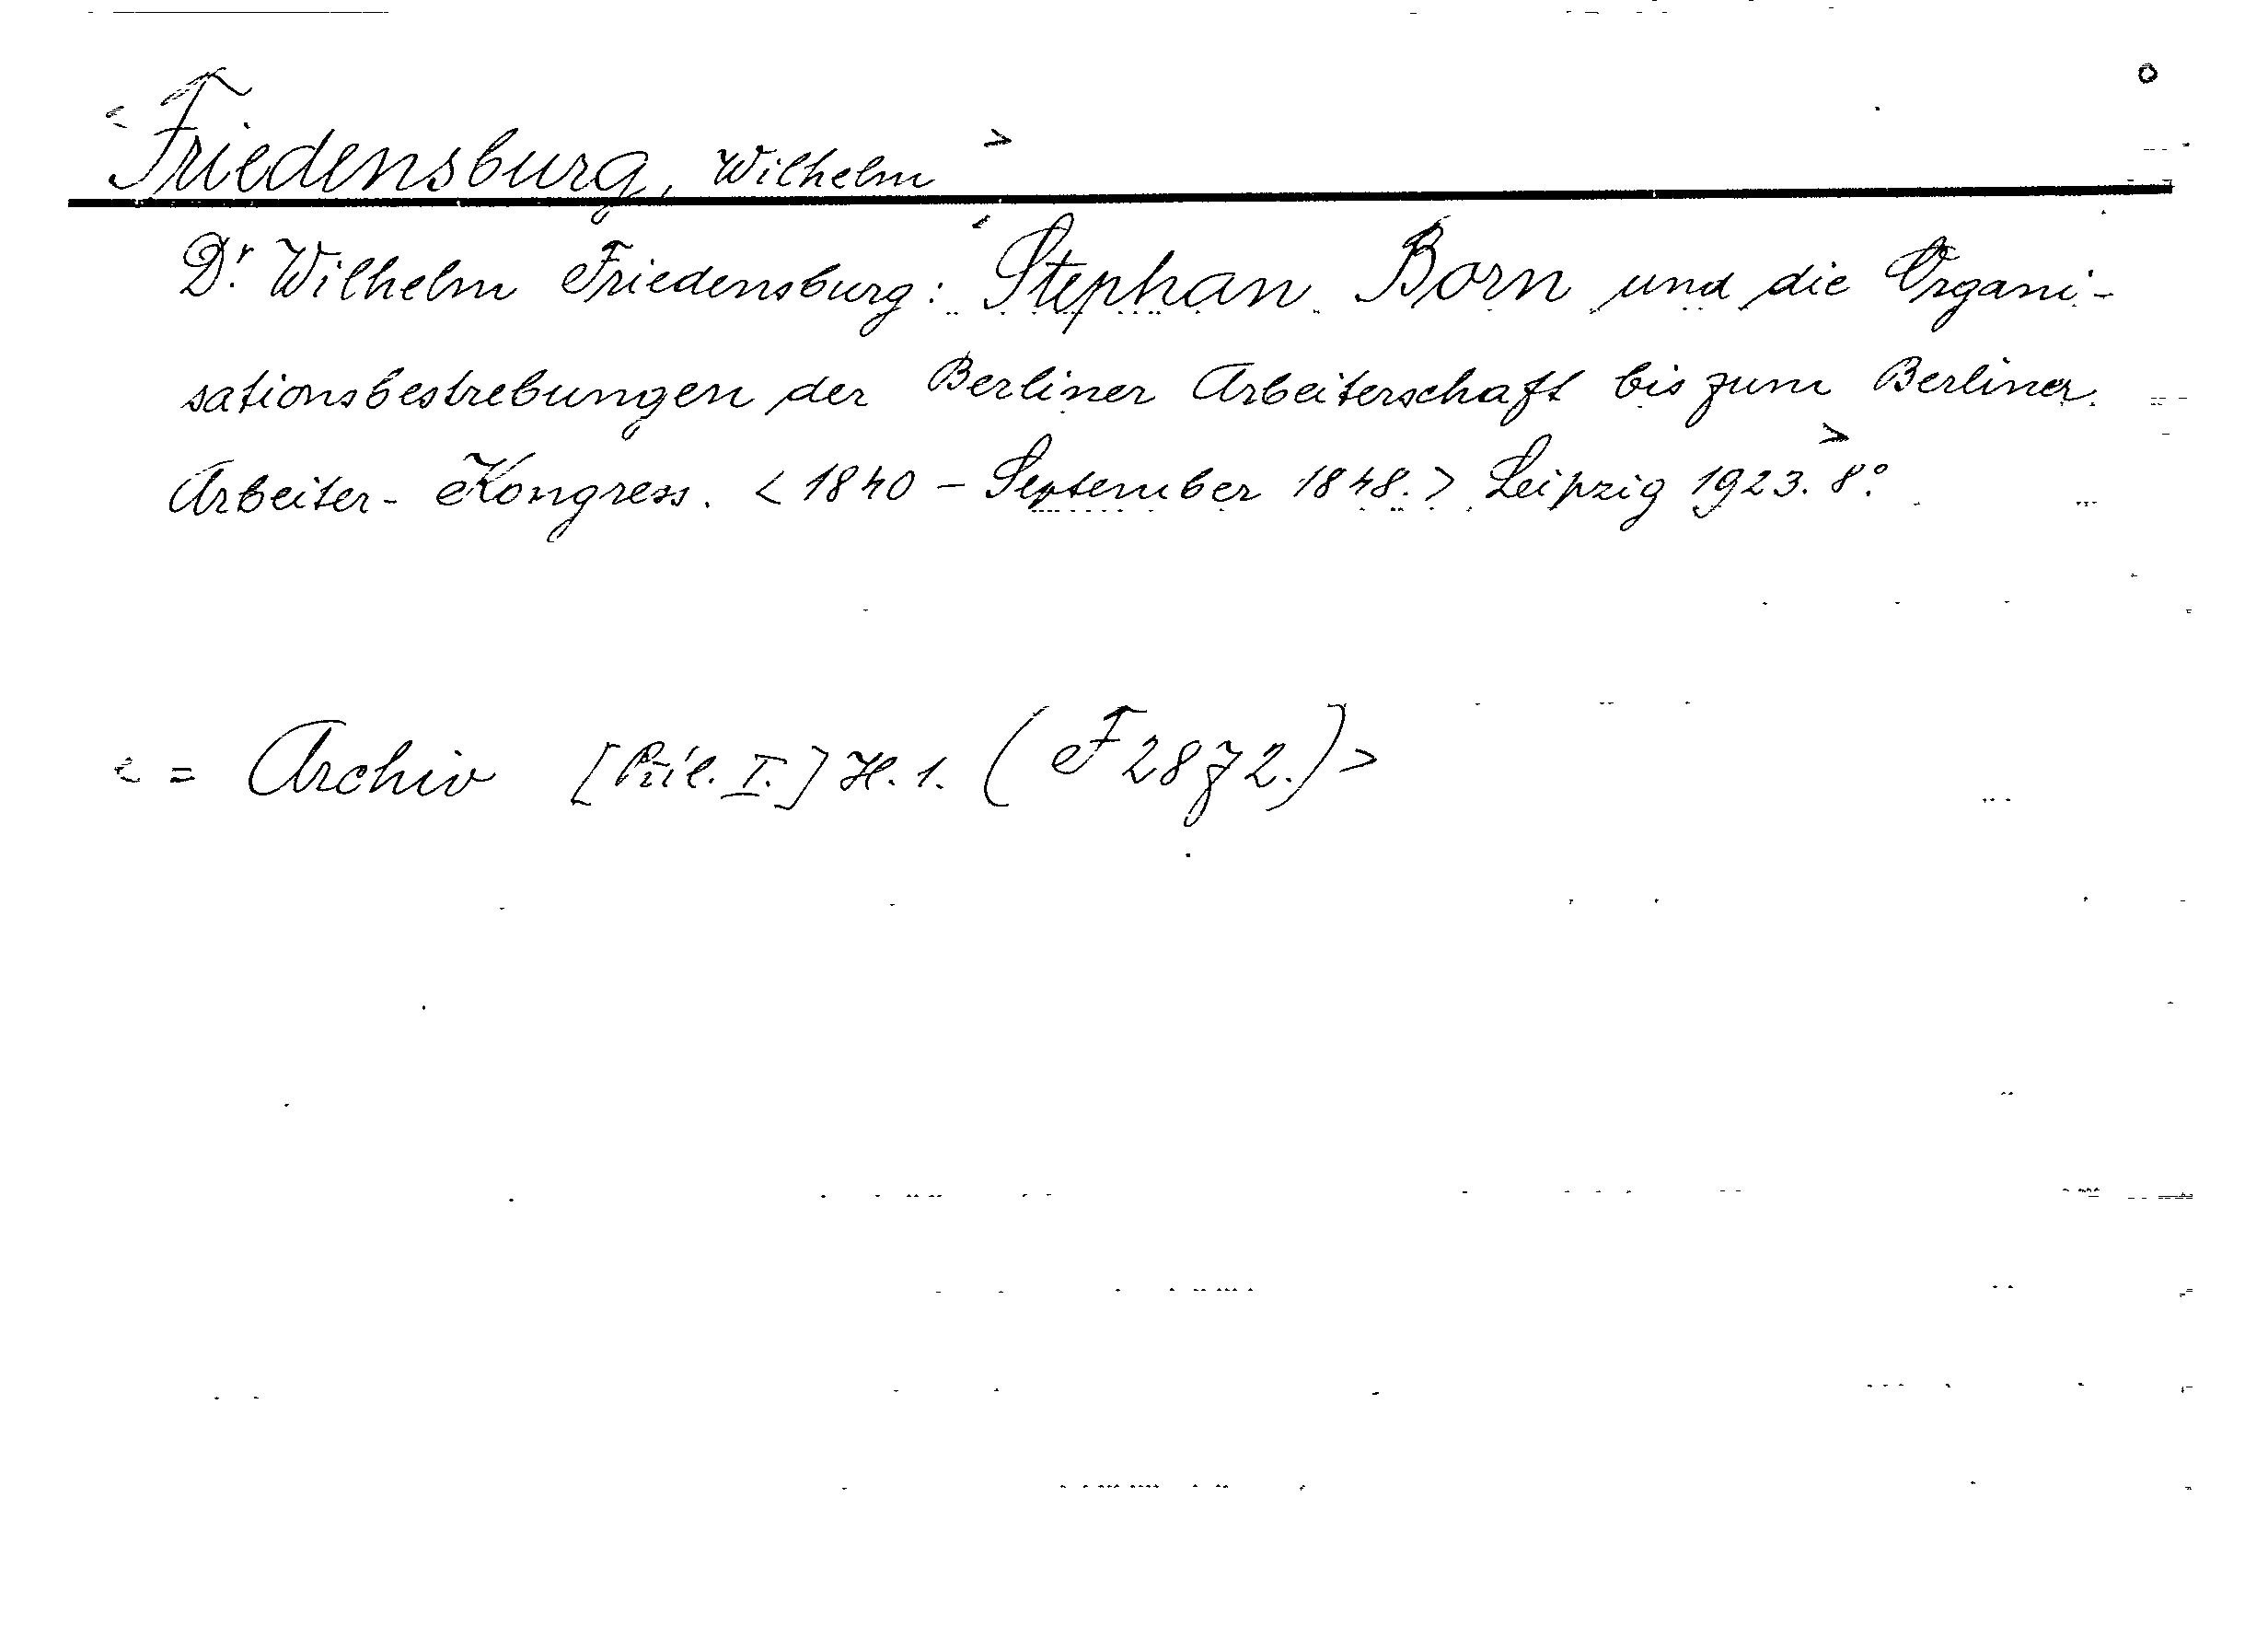 < Friedensburg, Wilhelm >
Dr. Wilhelm Friedensburg: < Stephan Born und die Organi-
sationsbestrebungen der Berliner Arbeiterschaft bis zum Berliner
Arbeiter-Kongress. < 1840 - September 1848. > Leipzig 1923. > 8°.
< = Archiv [Príl. I.] H. 1. (F 2872.) >